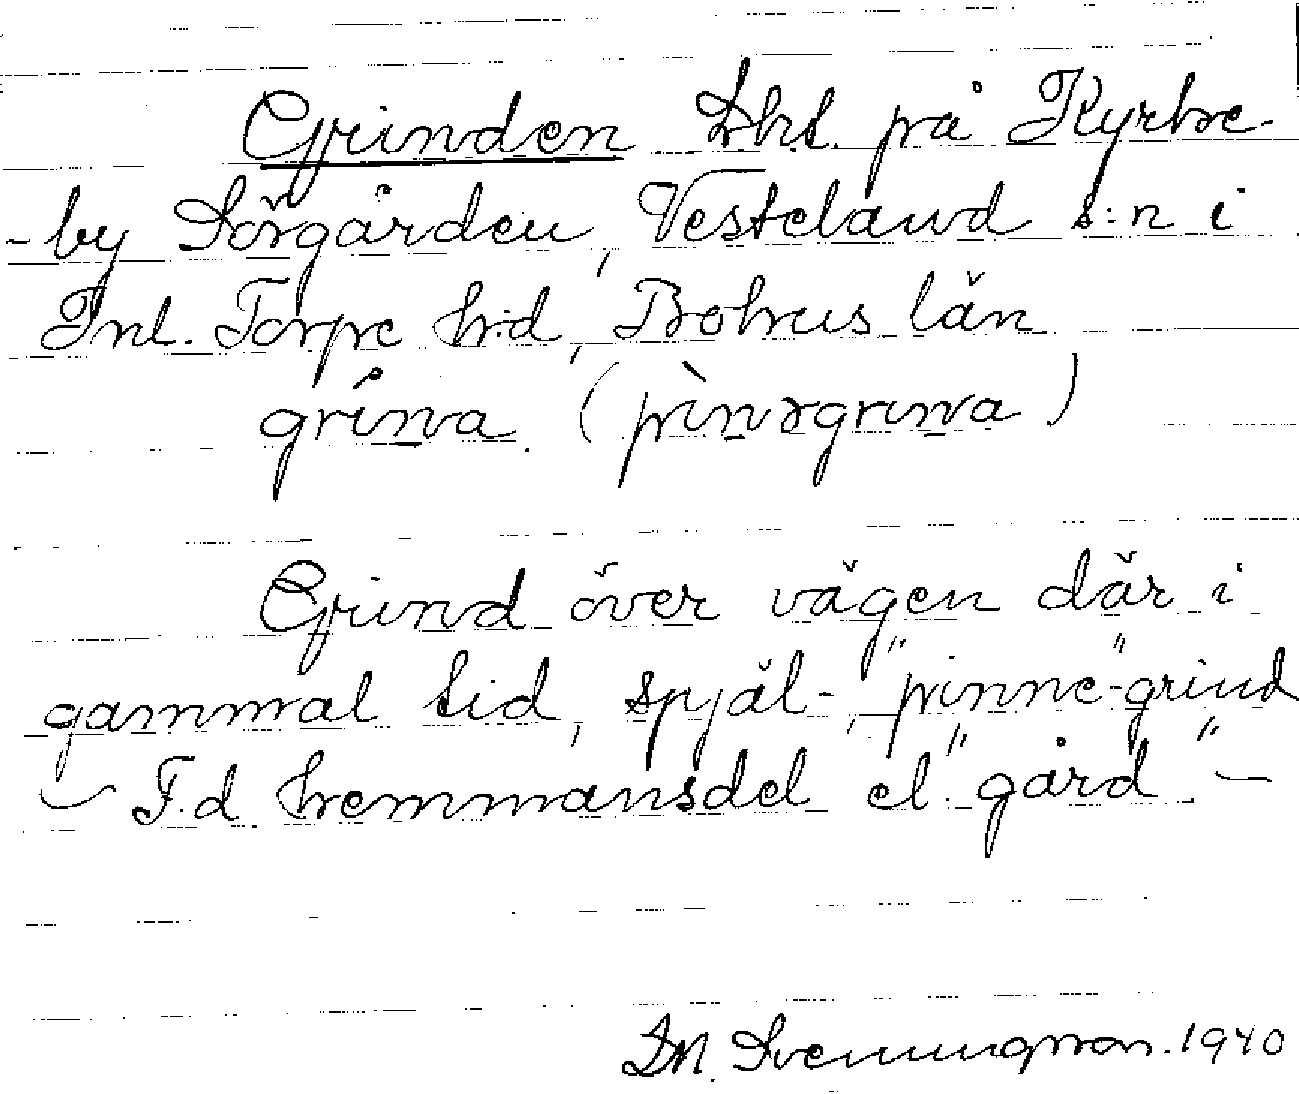 Grinden Lht. på Kyrke-
-by Sörgården, Vesteland s:n i
Inl. Torpe hrd, Bohus län
grı̊na (pìnəgrına)
Grind över vägen där i
gammal tid, spjäl-, "pinne-"grind
– F.d hemmansdel el "gård" –
Svenungsson. 1940